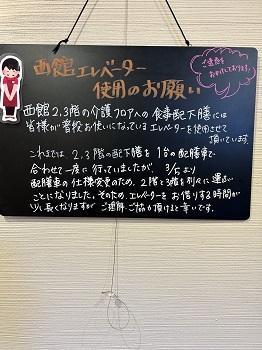 西館エレベーター
使用のお願い
ご迷惑を
おかけしております。
西館2,3階の介護フロアへの食事配下膳には
皆様が普段お使いになっているエレベーターを使用させて
頂いています。
これまでは、2,3階の配下膳を1台の配膳車で
合わせて一度に行っていましたが、3/5より
配膳車の仕様変更のため、2階と3階を別々に運ぶ
ことになりました。そのため、エレベーターをお借りする時間が
少し長くなりますが、ご理解、ご協力頂けると幸いです。